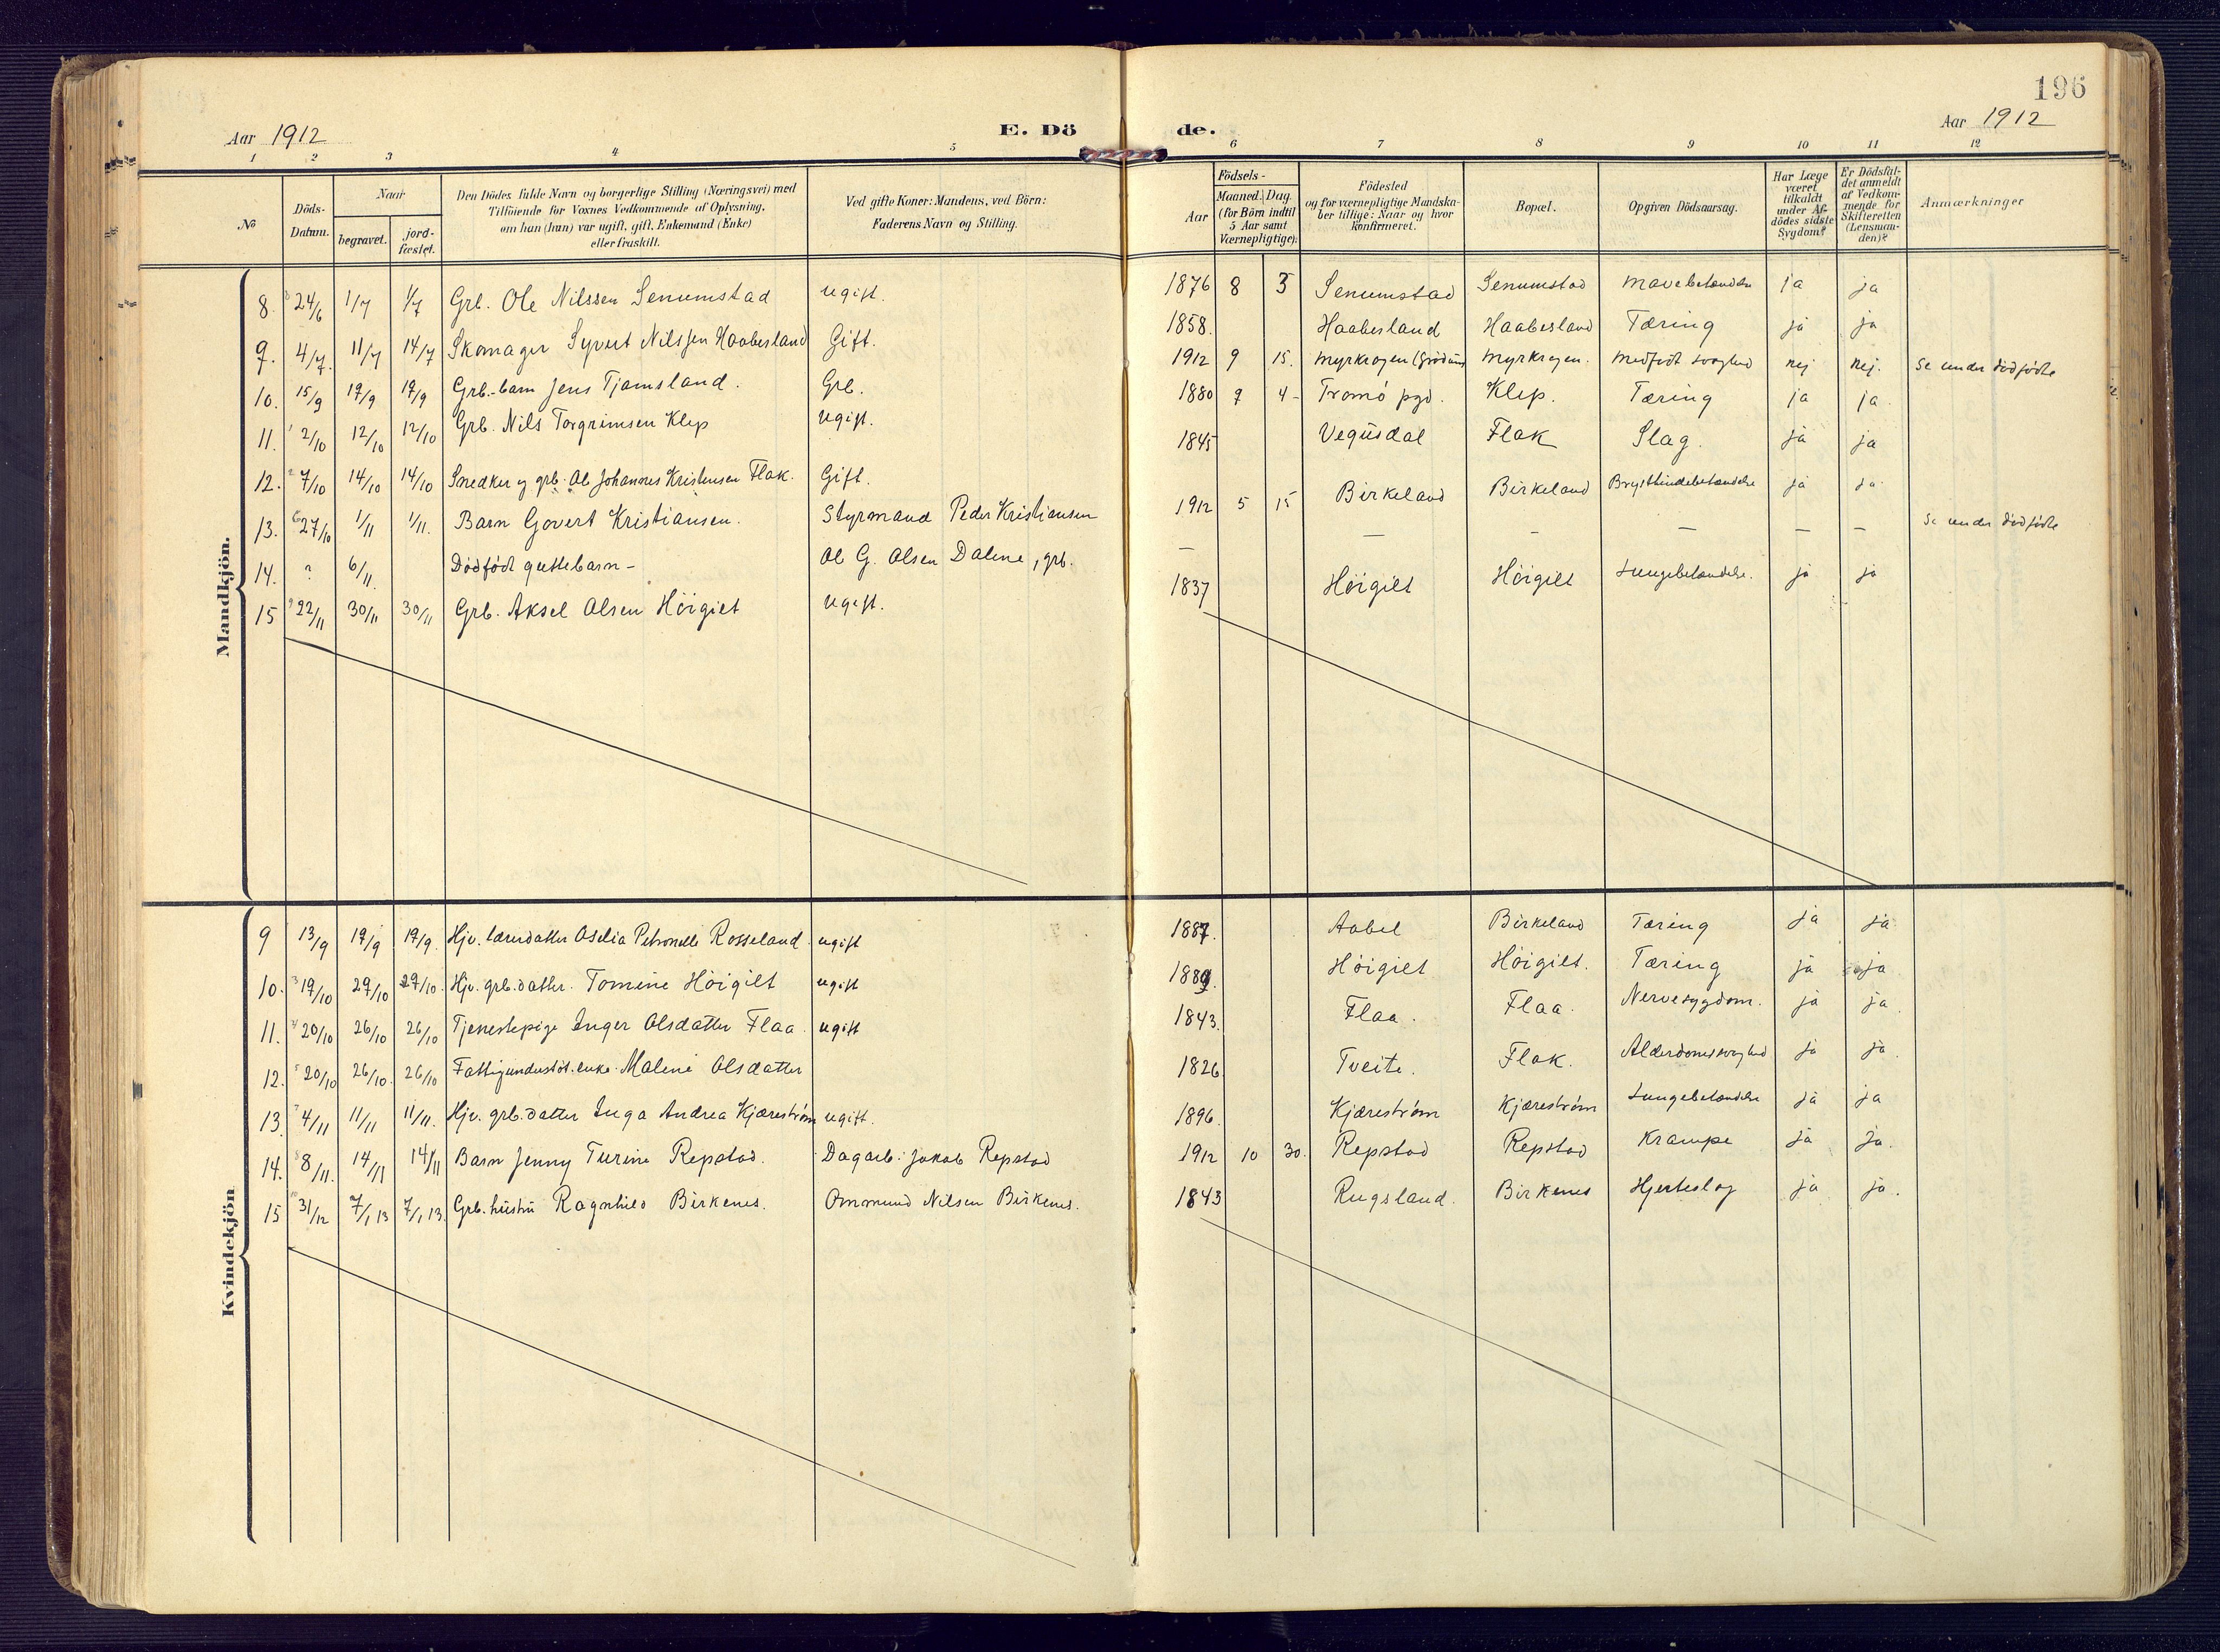 196
Aar 1912
E. Dö
de.
Aar 1912
1 2 3 4 5 6 7 8 9 10 11 12
No
Döds-
Datum.
Naar
begravet.
jord-
fæstet.
Den Dödes fulde Navn og borgerlige Stilling (Næringsvei) med
Tilföiende for Voxnes Vedkommende af Oplysning,
om han (hun) var ugift, gift, Enkemand (Enke)
eller fraskilt.
Ved gifte Koner: Mandens, ved Börn:
Faderens Navn og Stilling.
Födsels-
Aar
Maaned. Dag.
(for Börn indtil
5 Aar samt
Værnepligtige).
Födested
og for værnepligtige Mandska-
ber tillige: Naar og hvor
konfirmeret.
Bopæl.
Opgiven Dödsaarsag.
Har Læge
været
tilkaldt
under Af-
dödes sidste
Sygdom?
Er Dödsfal-
det anmeldt
af Vedkom-
mende for
Skifteretten
(Lensman-
den)?
Anmærkninger
Mandkjön.
8. 24/6 1/7 1/7 Grb. Ole Nilssen Senumstad ugift. 1876 8 3 Senumstad Senumstad Mavebetændelse ja ja
9. 4/7. 11/7 14/7 Skomager Syvert Nilssen Haabesland Gift. 1858. Haabesland Haabesland Tæring ja ja
10. 15/9 19/9 19/9 Grb.-barn Jens Tjamsland. Grb. 1912 9 15. Myrkrogen Myrkrogen. Medfødt svaghed nej nej. Se under dødfødte
11. 2/10 12/10 12/10 Grb. Nils Torgrimsen Klep ugift. 1880 9 4 - Tromö pgd. Klep. Tæring ja ja
12. 7/10 14/10 14/10 Snedker og grb. Ole Johannes Kristensen Flak. Gift. 1845 Vegusdal Flak Slag. ja ja
13. 27/10 1/11 1/11. Barn Govert Kristiansen. Styrmand Peder Kristiansen 1912 5 15 Birkeland Birkeland Brysthindebetændelse ja ja
14. ? 6/11. Dödfödt guttebarn - Ole G. Olsen Dalene, grb. — — — — — — Se under dødfødte
15 22/11 30/11 30/11 Grb. Aksel Olsen Höigilt ugift. 1837 Höigilt Höigilt Lungebetændelse. ja ja
Kvindekjön
9 13/9 19/9 19/9. Hjv. lærerdatter Oselia Petronelle Rosseland ugift 1887. Aabel Birkeland Tæring ja ja
10. 19/10 29/10 29/10. Hjv. grb.datter. Tomine Höigilt ugift 1889. Höigilt Höigilt. Tæring ja ja
11. 20/10 26/10 26/10 Tjenestepige Inger Olsdatter Flaa. ugift 1843. Flaa. Flaa. Nervesygdom. ja ja.
12. 20/10 26/10. 26/10 Fattigunderstöt. enke. Malene Olsdatter 1826 Tveite. Flak. Alderdomssvaghed ja ja.
13. 4/11 11/11 11/11. Hjv. grb.datter Inga Andrea Kjæreström ugift. 1896. Kjæreström Kjæreström Lungebetændelse ja ja
14. 8/11. 14/11 14/11 Barn Jenny Turine Repstad. Dagarb: Jakob Repstad 1912 10 30. Repstad Repstad Krampe ja ja.
15 31/12 7/1 13 7/1 13. Grb. hustru Ragnhild Birkenes. Ommund Nilsen Birkenes. 1843 Rugsland. Birkenes Hjerteslag ja ja.